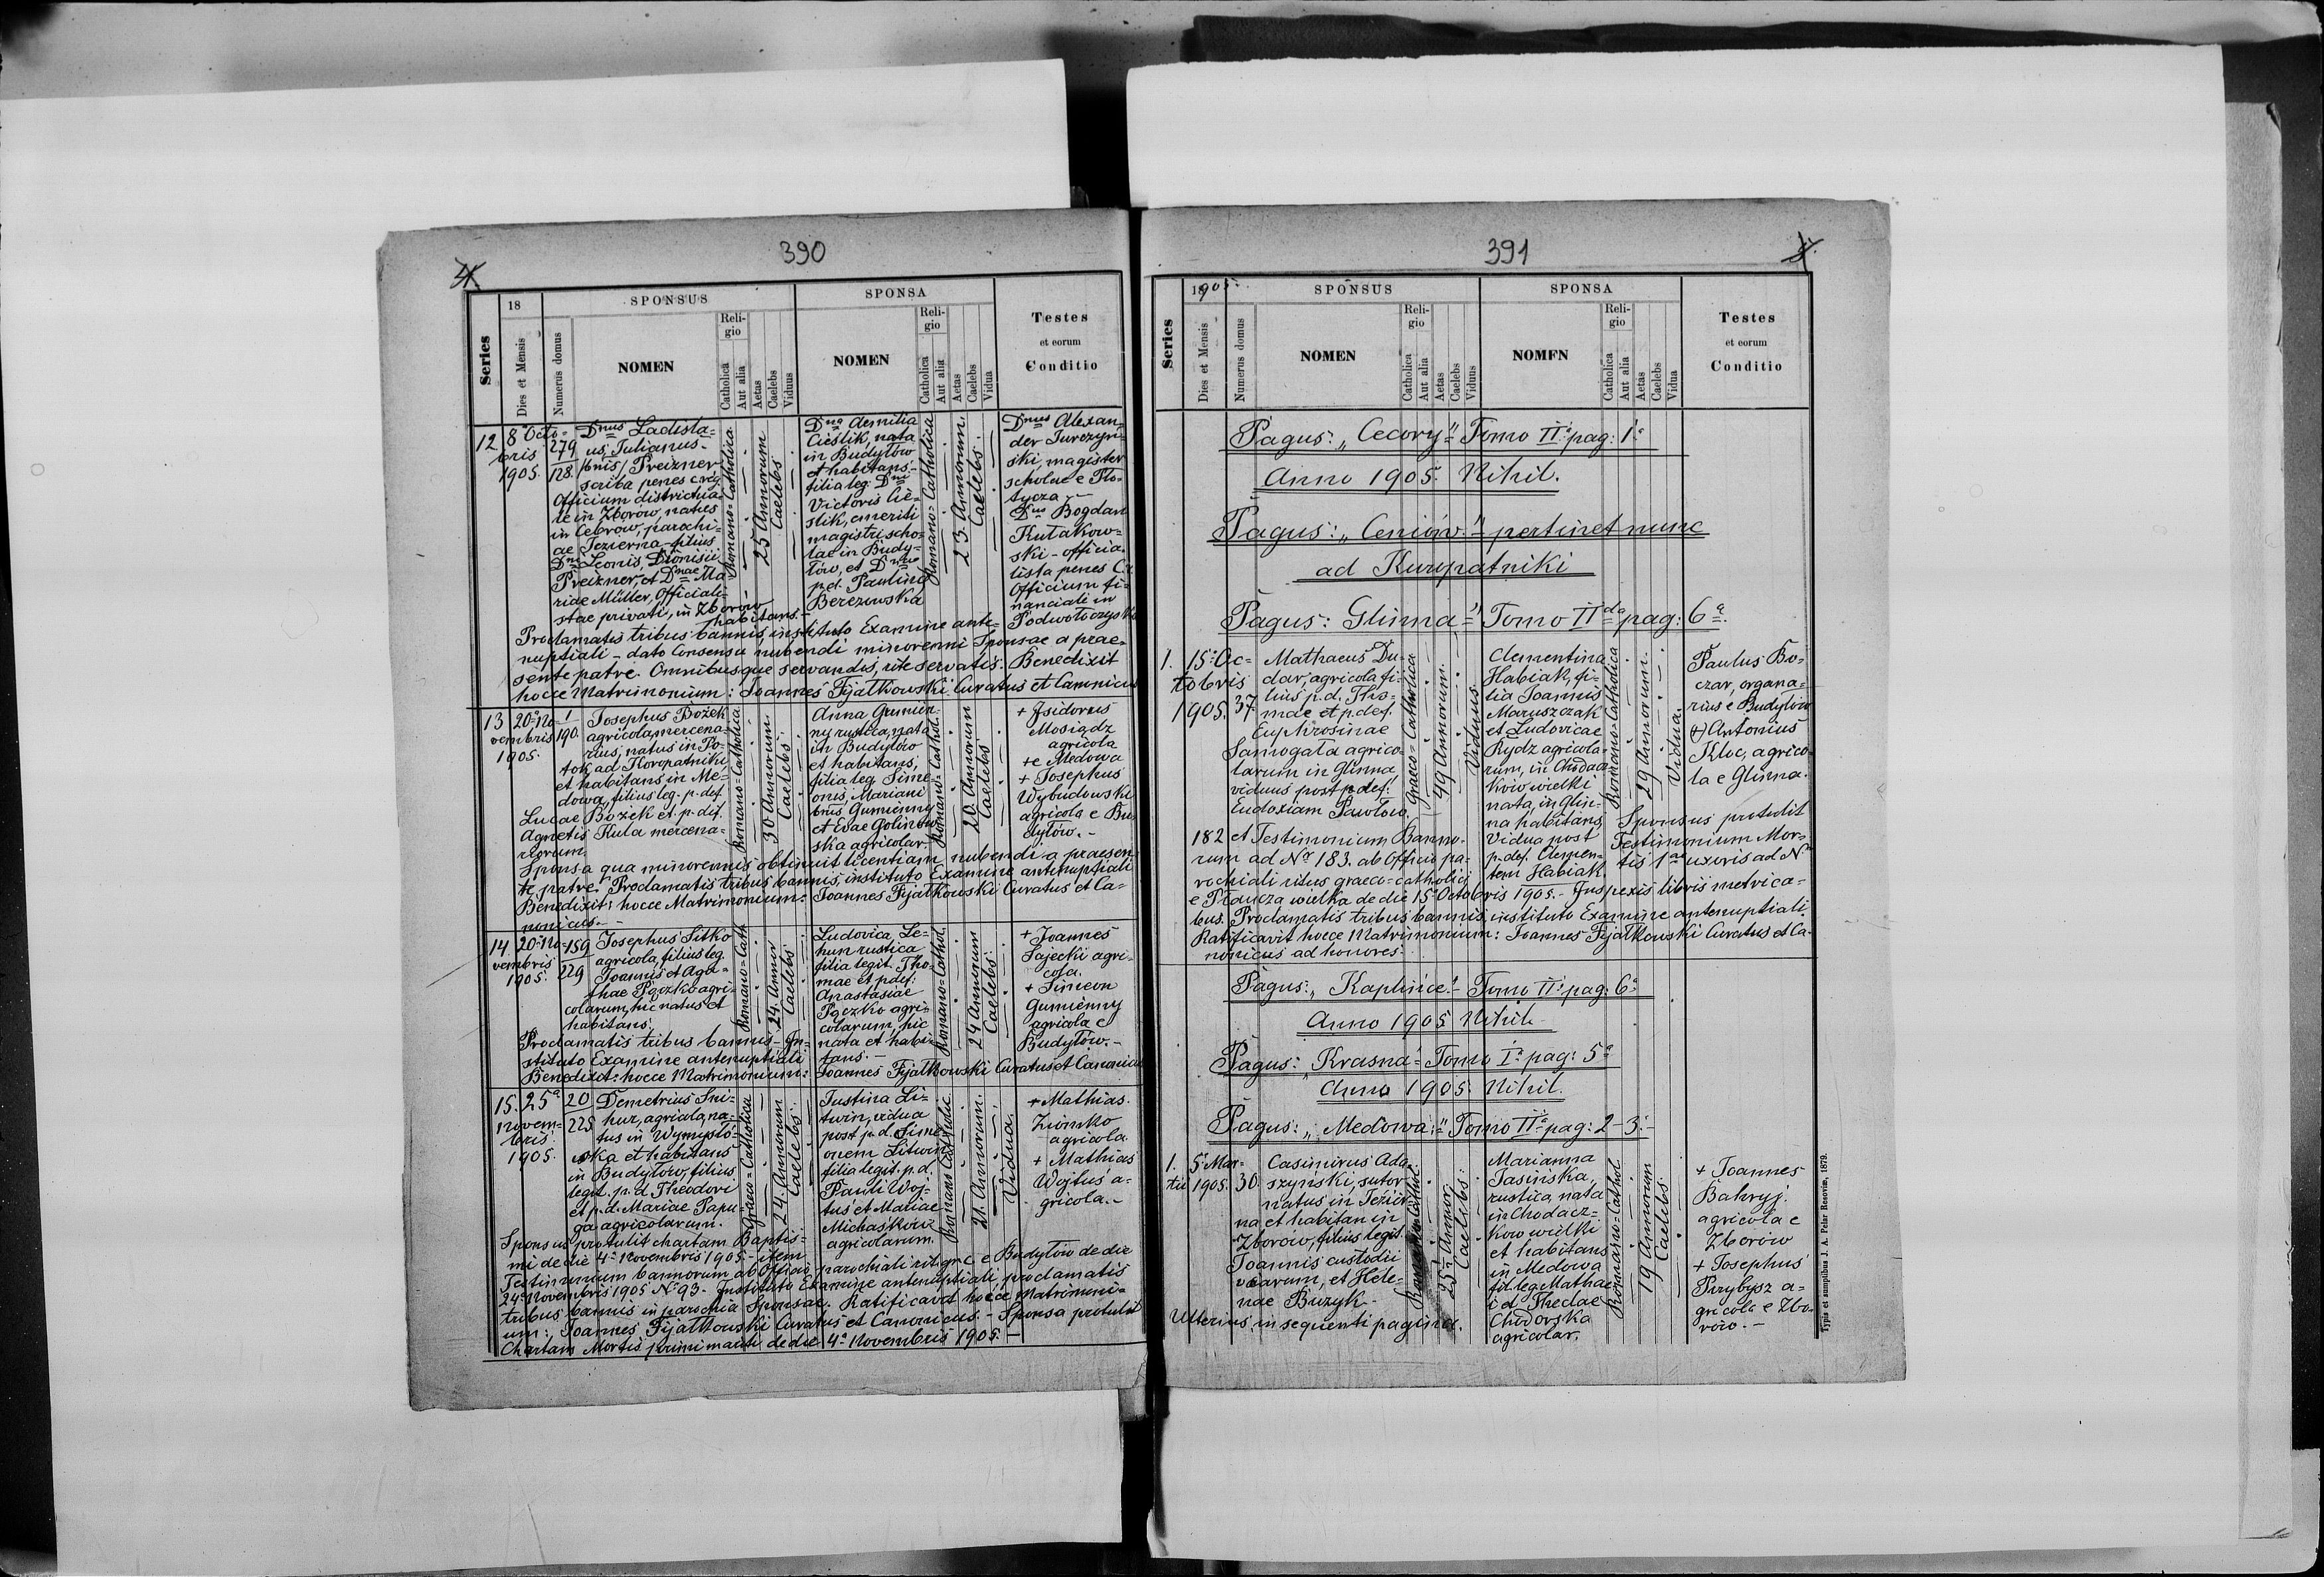 390
4
18
SPONSUS
SPONSA
Testes
et eorum
Conditio
Series
Dies et Mensis
Numerus domus
NOMEN
Reli-
gio
Catholica
Aut alia
Aetas
Caelebs
Viduus
NOMEN
Reli-
gio
Catholica
Aut alia
Aetas
Caelebs
Vidua
12
8a Octo-
bris
1905.
279
128.
Dnus Ladisla-
us, Julianus-
/bnis/ Preizner
scriba penes c. reg.
Officium districtua-
le in Zborow, natus
in Cebrow, parochi-
ae Jezierna - filius
Dni Leonis, Dionisii
Preizner, et Dnae Ma-
riae Müller, Officiali-
stae privati, in Zborow
habitans.-
Romano-Catholica
25 Annorum
Caelebs
Dna Aemilia
Cieslik, nata
in Budyłow
et habitans.-
filia leg. Dni
Victoris Cie-
slik, emeriti
magistri scho-
lae in Budy-
łów, et Dnae
p.d. Paulina
Berezowska
Romano-Catholica
23. Annorum.
Caelebs.
Dnus Alexan-
der Jurczyń-
ski, magister
scholae e Pło-
tycza -
Dnus Bogdan
Kułakow-
ski - officia-
lista penes C.r.
Officium fi-
nanciale in
Podwołoczyska
Proclamatis tribus bannis, instituto Examine ante-
nuptiali - dato Consensu nubendi minorenni Sponsae a prae-
sente patre. Omnibusque servandis, rite servatis. Benedixit
hocce Matrimonium: Joannes Fijałkowski Curatus et Canonicus
13
20a No-
vembris
1905.
1
190.
Josephus Bożek
agricola, mercena-
rius, natus in Po-
tok ad Koropatniki
et habitans in Me-
dowa, filius leg. p. def.
Lucae Bożek et p. def.
Agnetis Kula mercena-
riorum.
Romano-Catholica
30 Annorum.
Caelebs
Anna Gumien-
ny rustica, nata
in Budyłów
et habitans,
filia leg. Sime-
onis, Mariani
bnis Gumienny
et Evae Golinow-
ska agricolar.
Romano-Cathol.
20. Annorum
Caelebs
+ Isidorus
Mosiądz
agricola
+ e Medowa
+ Josephus
Wybudowski
agricola e Bu-
dyłów.-
Sponsa qua minorennis obtinuit licentiam nubendi a praesen-
te patre. Proclamatis tribus bannis, instituto Examine antenuptiali
Benedixit hocce Matrimonium: Joannes Fijałkowski Curatus et Ca-
nonicus.-
14
20a No-
vembris
1905.
159
229
Josephus Sitko
agricola, filius leg.
Joannis et Aga-
thae Pączko agri-
colarum, hic natus et
habitans.
Romano-Cath
24. Annor
Caelebs
Ludovica Le-
hun rustica
filia legit. Tho-
mae et p. def.
Anastasiae
Pączko agri-
colarum, hic
nata et habi-
tans.-
Romano-Cathol.
24 Annorum
Caelebs.
+ Joannes
Sajecki agri-
cola.
+ Simeon
Gumienny
agricola e
Budyłów.-
Proclamatis tribus bannis - In-
stituto Examine antenuptiali
Benedixit hocce Matrimonium: Joannes Fijałkowski Curatus et Canonicus
15.
25a
Novem-
bris.
1905.
20
225
Demetrius Sni-
hur, agricola, na-
tus in Wymysłó-
wka et habitans
in Budyłów, filius
legit. p. d. Theodori
et p.d. Mariae Papu-
ga agricolarum.
Graeco-Catholica
24. Annorum
Caelebs.
Justina Li-
twin, vidua
post p.d. Sime-
onem Litwin
filia legit. p.d.
Pauli Woj-
tuś et Mariae
Michaśków
agricolarum.
Romano Catholic.
21. Annorum.
Vidua
+ Mathias
Ziomko
agricola.
+ Mathias
Wojtuś a-
gricola.-
Sponsus protulit chartam Baptis-
mi de die 4a Novembris 1905 - item
Testimonium bannorum ab Officio parochiali rit. gr. c. e Budyłów de die
24a Novembris 1905 No 93 - Instituto Examine antenuptiali, proclamatis
tribus bannis in parochia Sponsae. Ratificavit hocce Matrimoni-
um: Joannes Fijałkowski Curatus et Canonicus.- Sponsa protulit
Chartam Mortis primi mariti de die 4a Novembris 1905.-
391
1905.
SPONSUS
SPONSA
Testes
et eorum
Conditio
Series
Dies et Mensis
Numerus domus
NOMEN
Reli-
gio
Catholica
Aut alia
Aetas
Caelebs
Viduus
NOMFN
Reli-
gio
Catholica
Aut alia
Aetas
Caelebs
Vidua
Pagus: „Cecory" Tomo IIo pag: 1a
Anno 1905. Nihil.
Pagus: „Ceniów" - pertinet nunc
ad Kuropatniki
Pagus: Glinna" Tomo IIdo pag: 6a.
1.
15a Oc-
tobris
1905.
37
Mathaeus Du-
dar, agricola fi-
lius p.d. Tho-
mae et p. def.
Euphrosinae
Samogała agrico-
larum in Glinna,
viduus post p. def.
Eudoxiam Pawłow.
Graeco-Catholica
49 Annorum.
Viduus.
Clementina
Habiak, fi-
lia Joannis
Maruszczak
et Ludovicae
Rydz agricola-
rum, in Chodacz-
ków wielki
nata, in Glin-
na habitans,
Vidua post
p. def. Clemen-
tem Habiak.
Romano-Catholica
29 Annorum.
Vidua.
Paulus Bo-
czar, organa-
rius e Budyłów
(+) Antonius
Kloc, agrico-
la e Glinna.
Sponsus protulit
Testimonium Mor-
tis 1ae uxoris ad No
182 et Testimonium Banno-
rum ad No 183. ab Officio pa-
rochiali ritus graeco-catholici
e Płaucza wielka de die 15a Octobris 1905.- Inspexis libris metrica-
bus. Proclamatis tribus bannis, instituto Examine antenuptiali.
Ratificavit hocce Matrimonium: Joannes Fijałkowski Curatus et Ca-
nonicus ad honores.
Pagus: „Kaplince" - Tomo IIo pag: 6a
Anno 1905 Nihil -
Pagus: „Krasna" - Tomo Io pag: 5a
Anno 1905. Nihil.
Pagus: „Medowa:" Tomo IIo pag: 2-3.-
1.
5a Mar-
tii 1905.
30
Casimirus Ada-
szyński, sutor
natus in Jezier-
na et habitan in
Zborow, filius legit.
Joannis custodii
viarum, et Hele-
nae Buzyk -
Romano-Cathol.
25 Annor.
Caelebs.
Marianna
Jasińska,
rustica, nata
in Chodacz-
ków wielki
et habitans
in Medowa
fil. leg. Mathae-
i et Theclae
Chodorska
agricolar.
Romano-Cathol
19 Annorum
Caelebs.
+ Joannes
Bahryj.
agricola e
Zborów
+ Josephus
Przybysz a-
gricola e Zbo-
rów.-
Ulterius in sequenti pagina.
Typis et sumptibus J. A. Pelar Resoviæ, 1879.